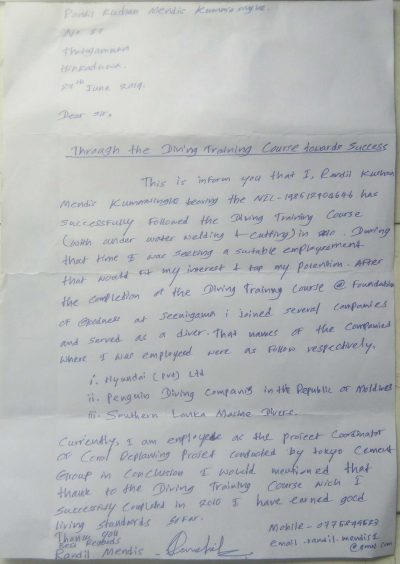 Randil Kuthan Mendis Kummalingha.
No: 57
Thotagamuwa
Hinkaduwa.
27th June 2019.
Dear Sir,
Through the Diving Training Course towards Success
This is inform you that I, Randil Kuthan
Mendis bearing the NIC - has
Successfully Followed the Diving Training Course
(with under water welding & cutting) in 2010. During
that time I was seeking a suitable employement
that would fit my interest & top my potention. After
the completion of the Diving Training Course @ Foundation
of Goodness at Seenigama i joined several companies
and served as a diver. That names of the companies
where I was employeed were as follow respectively.
i. Hyundai (Pvt) Ltd
ii. Penguin Diving Companis in the Republic of Moldives
iii. Southern Lanka Marine Divers.
Currently, I am employede as the project Coordinator
of Corol Deplawing Project conducted by tokyo Cement
Group in Conclusion I would mentioned that
thank to the Diving Training Course wich I
Successfuly Completed in 2010 I have earned good
living standards sofar.
Thank you
Best Regards
Randil Mendis -
Mobile -
email - randil.mendis1
@gmail.com